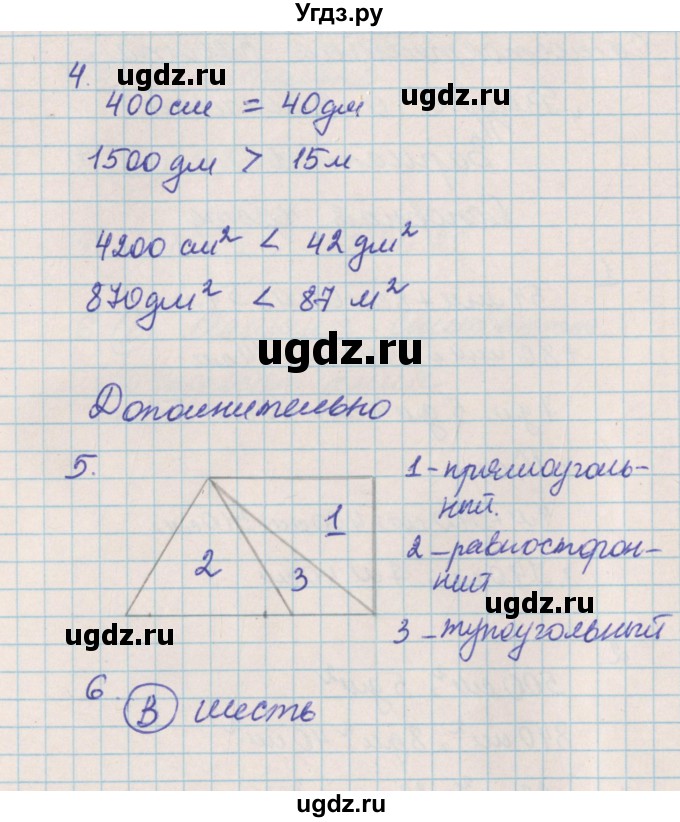 Угдз.ру
4. ugdz.ru
400 см = 40 дм ugdz.ru
1500 дм > 15 м
4200 см² < 42 дм²
870 дм² < 87 м²
ugdz.ru
Дополнительно
5.
1 - прямоуголь-
ный.
2 - равносторон-
ний
3 - тупоугольный
1
2
3
ugdz.ru
ugdz.ru
6. В шесть
ugdz.ru
ugdz.ru